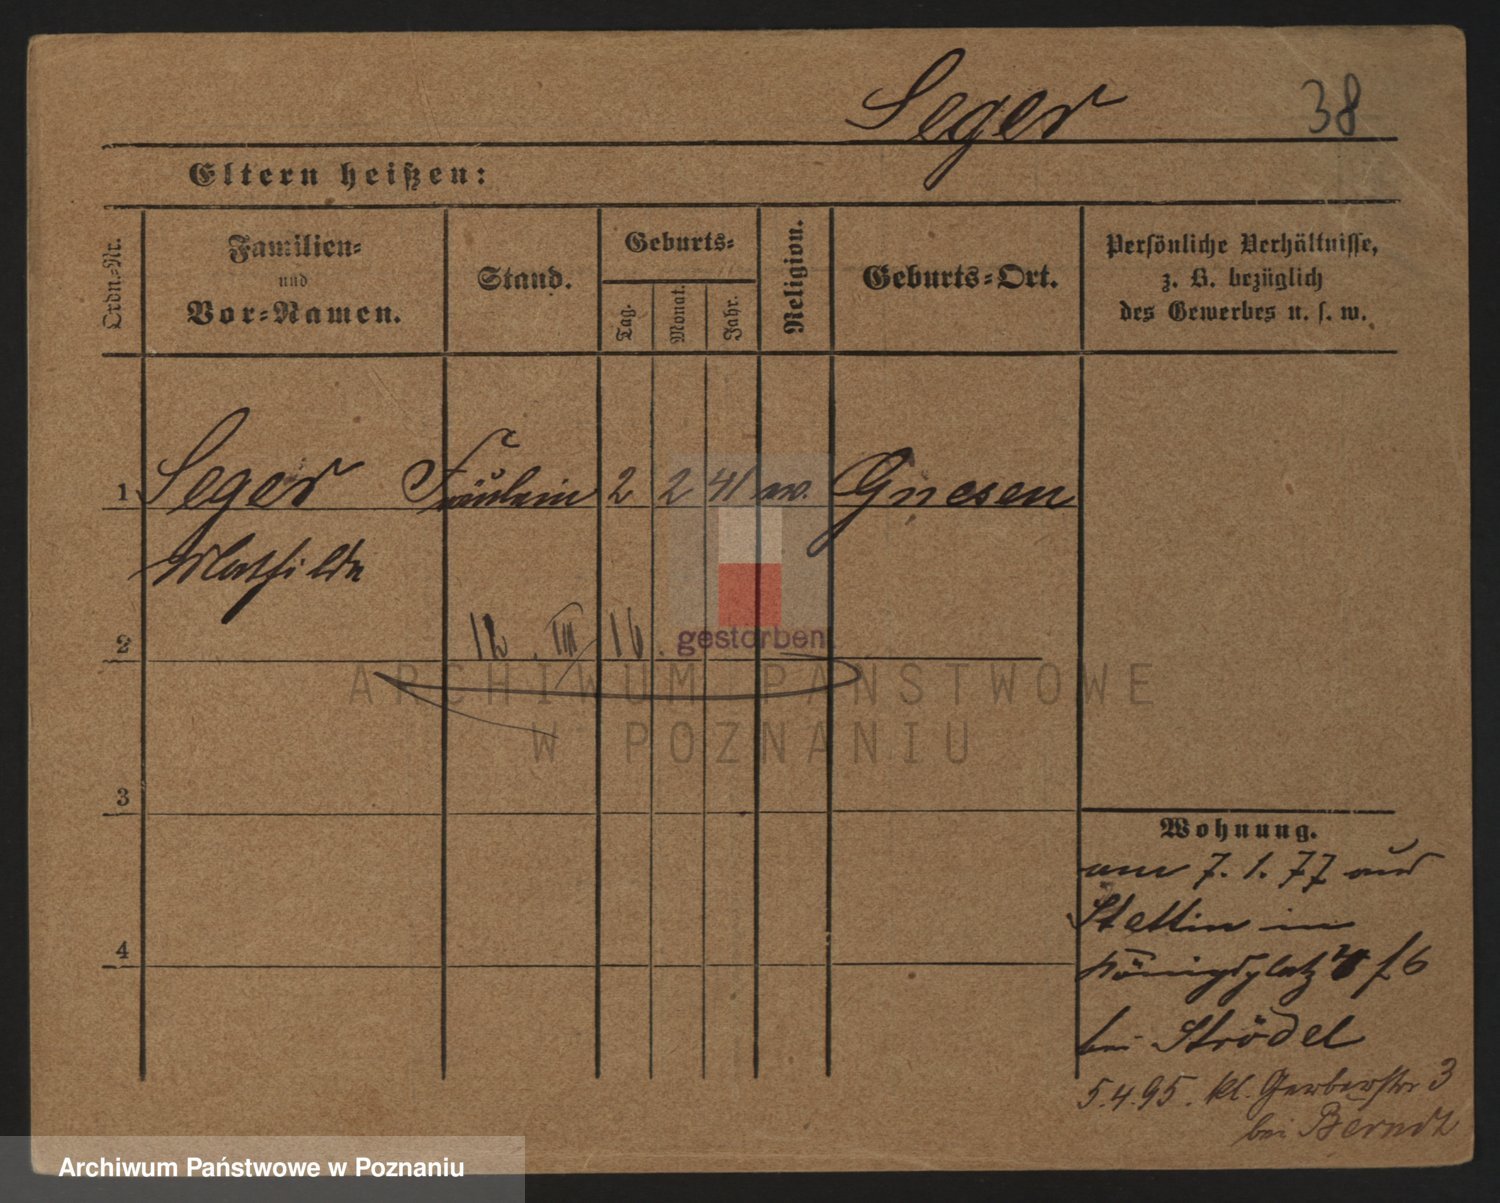 Seger 38
Eltern heißen:
Ordn.-Nr.
Familien-
und
Vor-Namen.
Stand.
Geburts-
Tag.
Monat.
Jahr.
Religion.
Geburts-Ort.
Persönliche Verhältnisse,
z. B. bezüglich
des Gewerbes u. s. w.
1 Seger Fräulein 2 2 41 ev. Gnesen
Mathilde
2 12. III 16. gestorben
ARCHIWUM PAŃSTWOWE
W POZNANIU
3
Wohnung.
am 7. 1. 77 aus
Stettin in
4
Königsplatz 6
bei Strödel
5.4.95. kl. Gerberstr 3
bei Berndt
Archiwum Państwowe w Poznaniu